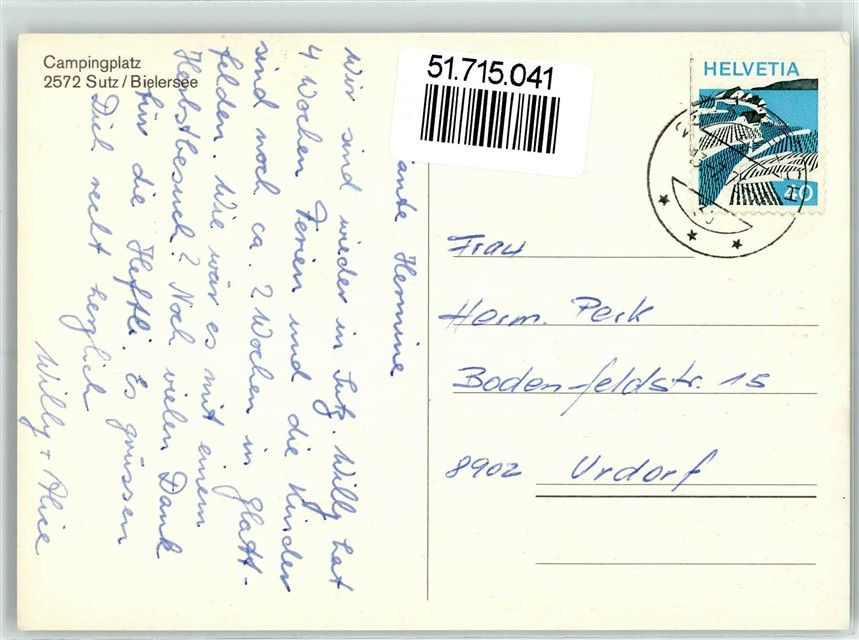 Campingplatz
2572 Sutz / Bielersee
51.715.041
HELVETIA
40
ante Hermine
Wir sind wieder in Sutz. Willy hat
4 Wochen Ferien und die Kinder
sind noch ca. 2 Wochen in Glatt-
felden. Wie war es mit einem
Herbstbesuch? Noch vielen Dank
für die Heftli. Es grüssen
Dich recht herzlich
Willy + Alice
Frau
Herm. Perk
Bodenfeldstr. 15
8902 Urdorf